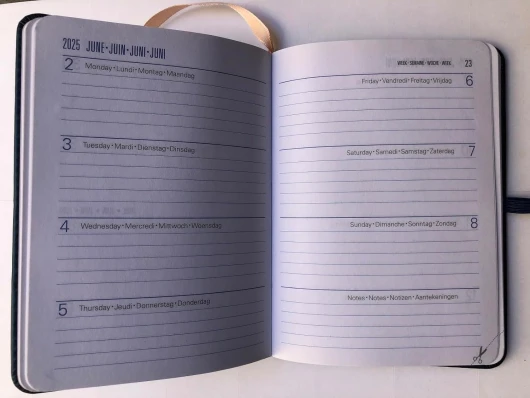 2025 JUNE•JUIN•JUNI•JUNI
2 Monday•Lundi•Montag•Maandag
3 Tuesday•Mardi•Dienstag•Dinsdag
4 Wednesday•Mercredi•Mittwoch•Woensdag
5 Thursday•Jeudi•Donnerstag•Donderdag
WEEK•SEMAINE•WOCHE•WEEK 23
Friday•Vendredi•Freitag•Vrijdag 6
Saturday•Samedi•Samstag•Zaterdag 7
Sunday•Dimanche•Sonntag•Zondag 8
Notes•Notes•Notizen•Aantekeningen